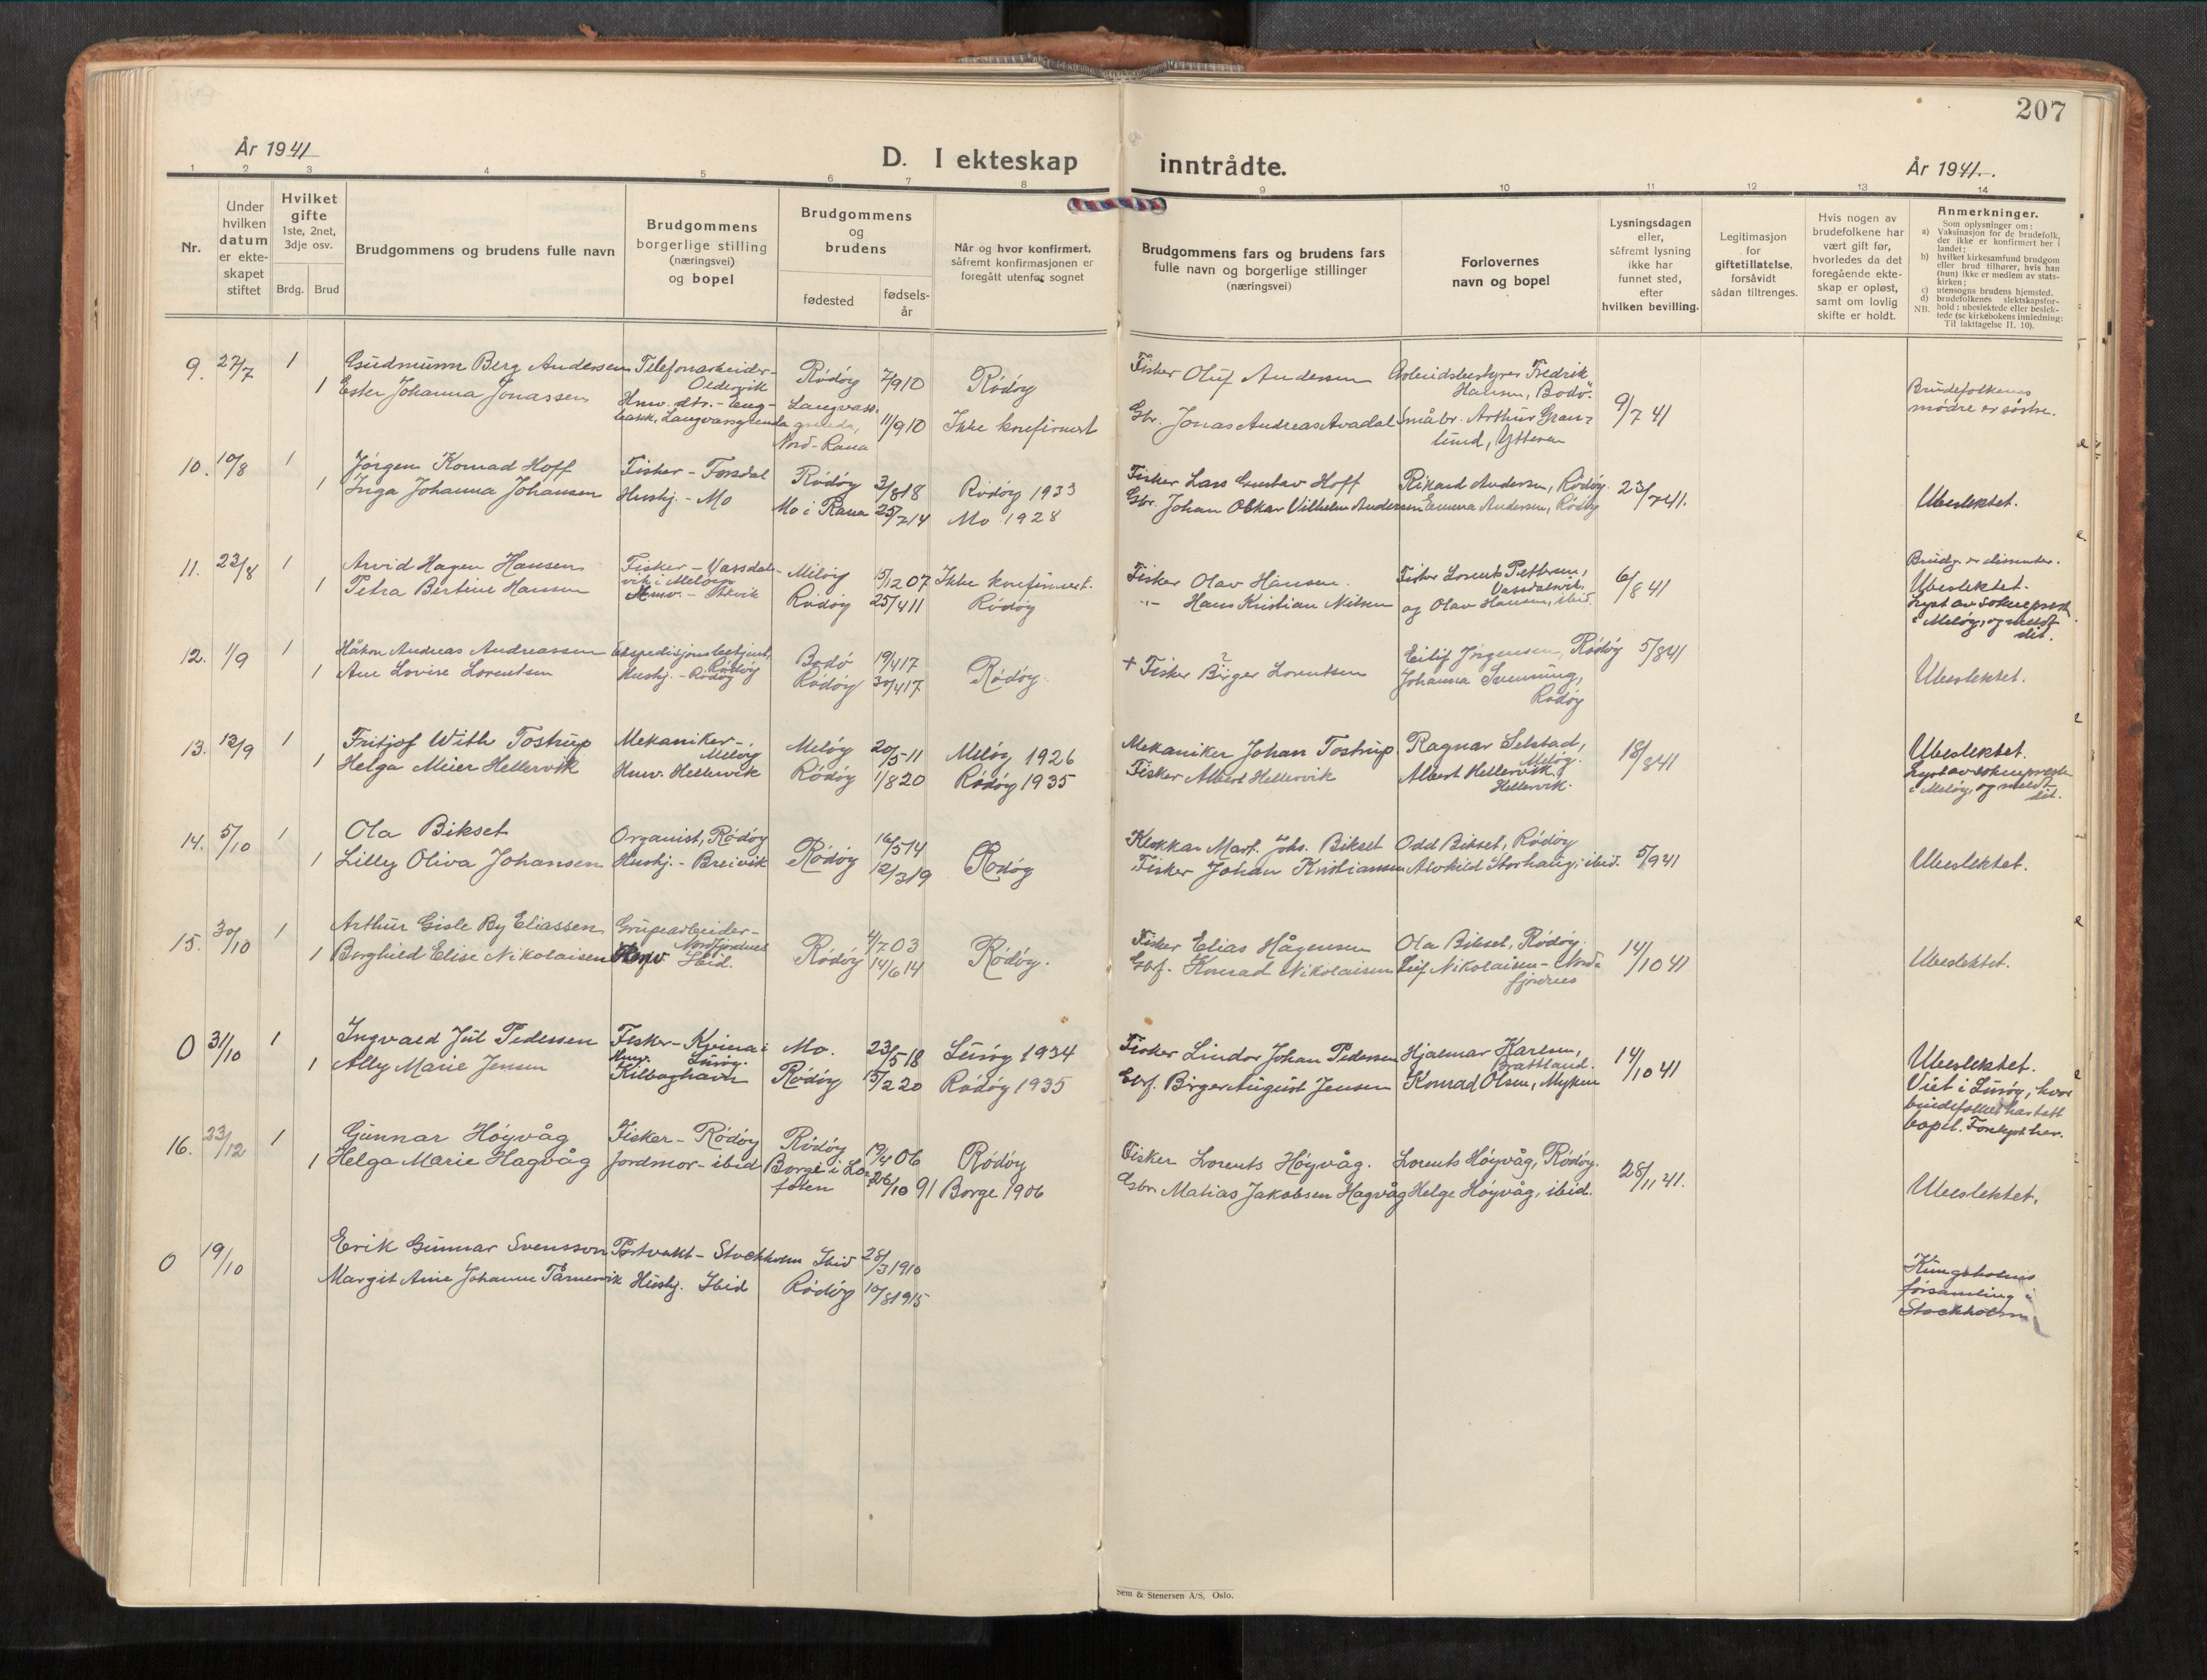 207
År 1941
D. I ekteskap inntrådte.
År 1941.
1 2 3 4 5 6 7 8 9 10 11 12 13 14
Nr.
Under hvilken datum er ekte-skapet stiftet
Hvilket gifte 1ste, 2net, 3dje osv.
Brdg. Brud
Brudgommens og brudens fulle navn
Brudgommens borgerlige stilling (næringsvei) og bopel
Brudgommens og brudens
fødested
fødsels-år
Når og hvor konfirmert, såfremt konfirmasjonen er foregått utenfor sognet
Brudgommens fars og brudens fars fulle navn og borgerlige stillinger (næringsvei)
Forlovernes navn og bopel
Lysningsdagen eller, såfremt lysning ikke har funnet sted, efter hvilken bevilling.
Legitimasjon for giftetillatelse, forsåvidt sådan tiltrenges.
Hvis nogen av brudefolkene har vært gift før, hvorledes da det foregående ekte-skap er opløst, samt om lovlig skifte er holdt.
Anmerkninger.
Som oplysninger om:
a) Vaksinasjon for de brudefolk, der ikke er konfirmert her i landet;
b) hvilket kirkesamfund brudgom eller brud tilhører, hvis han (hun) ikke er medlem av stats-kirken;
c) utensogns brudens hjemsted.
d) brudefolkenes slektskapsfor-hold: ubeslektede eller beslek-tede (se kirkebokens innledning:
NB. Til iakttagelse II. 10).
9. 27/7 1 Gudmunn Berg Andersen Telefonarbeider - Oldervik Rödöy 7/9 10 Rödöy Fisker Oluf Andersen Arbeidsbestyrer Fredrik Hansen, Bodö. 9/7 41 Brudefolkenes mödre er söstre.
1 Ester Johanna Jonassen Hmv. dtr. - Eng-bakk, Langvassgrenda Langvass-grenda, Nord-Rana 11/9 10 Ikke konfirmert Gbr. Jonas Andreas Avadal Småbr. Arthur Gran-lund, Ytteren
10. 10/8 1 Jörgen Konrad Hoff Fisker - Forsdal Rödöy 3/8 18 Rödöy 1933 Fisker Lars Gustav Hoff Rikard Andersen, Rödöy 23/7 41. Ubeslektet.
1 Inga Johanna Johansen Hushj. - Mo Mo i Rana 25/7 14 Mo 1928 Gbr. Johan Oskar Vilhelm Andersen Emma Andersen, Rödöy
11. 23/8 1 Arvid Hagen Hansen Fisker - Vassdal-vik i Meløy Melöy 15/12 07 Ikke konfirmert. Fisker Olav Hansen. Fisker Lorents Pettersen, Vassdalvik 6/8 41 Brudg. er dissenter. Ubeslektet.
1 Petra Bertine Hansen Hmv. - Rödöy 25/4 11 Rödöy " - Hans Kristian Nilsen og Olav Hansen, ibid. Lyst av sokneprest i Melöy, og meldt dit.
12. 1/9 1 Håkon Andreas Andreassen Ekspedisjonsbetjent, Rödöy Bodö 19/4 17 Rödöy. Eilif Jörgensen, Rödöy 5/8 41
1 Ane Lovise Lorentsen Hushj. - Rödöy Rödöy 30/4 17 + Fisker Birger Lorentsen Johanna Svenning, Rödöy Ubeslektet.
13. 13/9 1 Fritjof With Tostrup Mekaniker - Melöy Melöy 20/5-11 Melöy 1926 Mekaniker Johan Tostrup Ragnar Selstad, Melöy. 18/8 41 Ubeslektet.
1 Helga Meier Hellervik Hmv. Hellervik Rödöy 1/8 20 Rödöy 1935 Fisker Albert Hellervik Albert Hellervik, Hellervik. Lyst av sokneprest i Melöy, og meldt dit.
14. 5/10 1 Ola Bikset Organist, Rödöy Rödöy 16/5 14 Rödöy Klokkar Mart. Johs. Bikset Odd Bikset, Rödöy 5/9 41 Ubeslektet.
1 Lilly Oliva Johansen Hushj. - Breivik 12/3 19 Fisker Johan Kristiansen Alvhild Storhaug, ibid.
15. 30/10 1 Arthur Gisle By Eliassen Grupearbeider - Nordfjordnes Rödöy 4/7 03 Rödöy. Fisker Elias Hågensen Ola Bikset, Rödöy. 14/10 41 Ubeslektet.
1 Borghild Elise Nikolaisen Hmv Ibid. 14/6 14 Gbr. Konrad Nikolaisen Leif Nikolaisen - Nord-fjordnes
0 31/10 1 Ingvald Jul Pedersen Fisker - Kvina i Luröy. Mo. 23/5 18 Luröy 1934 Fisker Lindor Johan Pedersen Hjalmar Karlsen, Brattland. 14/10 41 Ubeslektet.
1 Ally Marie Jensen Hmv. Kilboghavn Rödöy 15/2 20 Rödöy 1935 Gbr. Birger August Jensen Konrad Olsen, Myken Viet i Luröy, hvor brudefolket har tatt bopel. Forlyst her.
16. 23/12 1 Gunnar Höyvåg Fisker - Rödöy Rödöy 19/4 06 Rödöy Fisker Lorents Höyvåg. Lorents Höyvåg, Rödöy. 28/11 41. Ubeslektet.
1 Helga Marie Hagvåg Jordmor - ibid Borge i Lo-foten 26/10 91 Borge 1906 Gbr. Matias Jakobsen Hagvåg Helge Höyvåg, ibid.
0 19/10 Erik Gunnar Svensson Portvakt - Stockholm Ibid 28/3 1910 Kungsholms församling i Stockholm
Margit Anie Johanne Tårnesvik Hushj. Ibid Rödöy 10/8 1915
Sem & Stenersen A/S, Oslo.